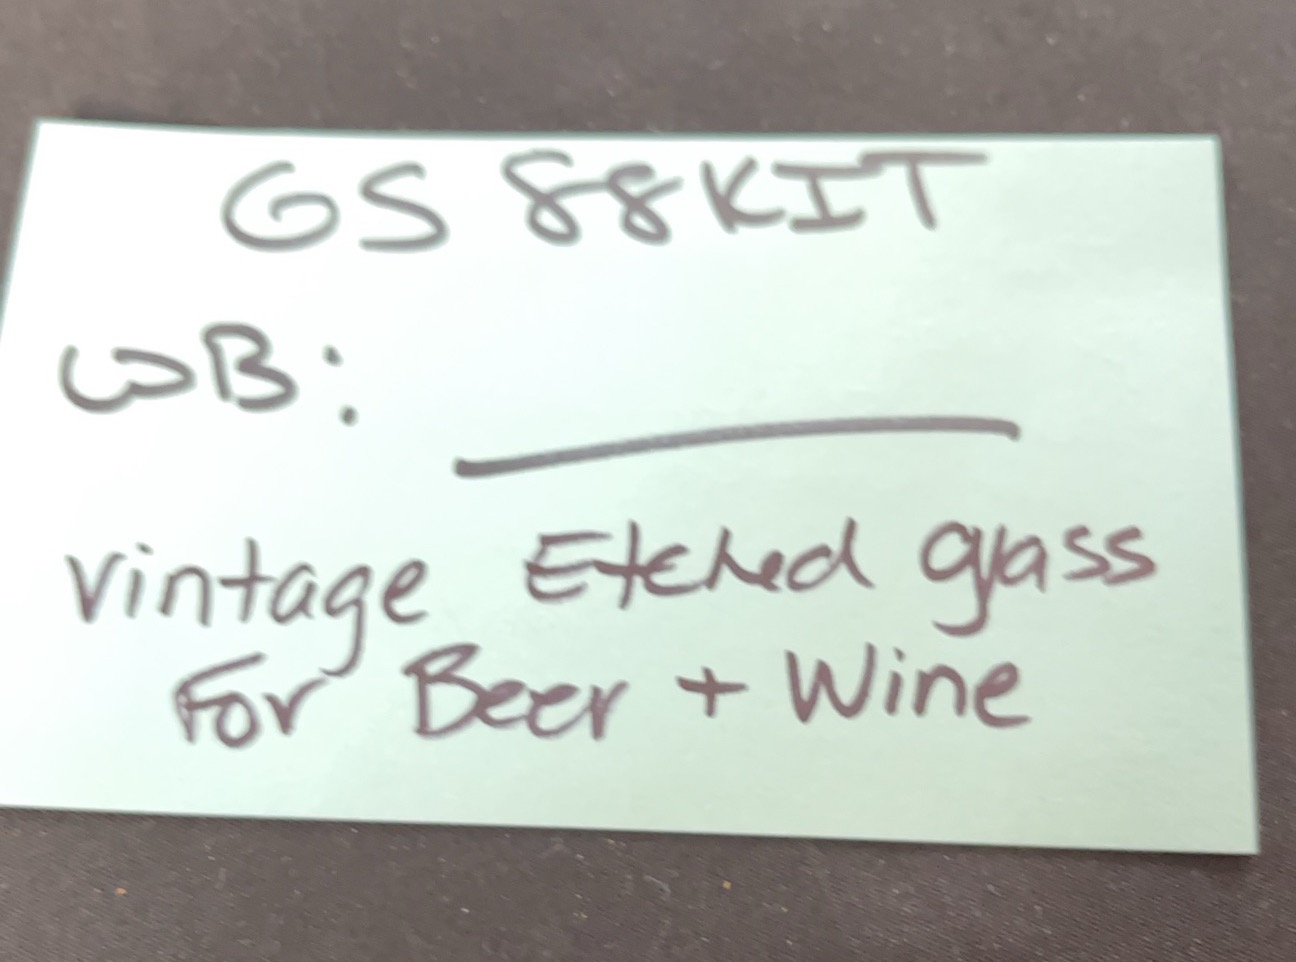 GS 88KIT
WB:
vintage Etched glass
For Beer + Wine